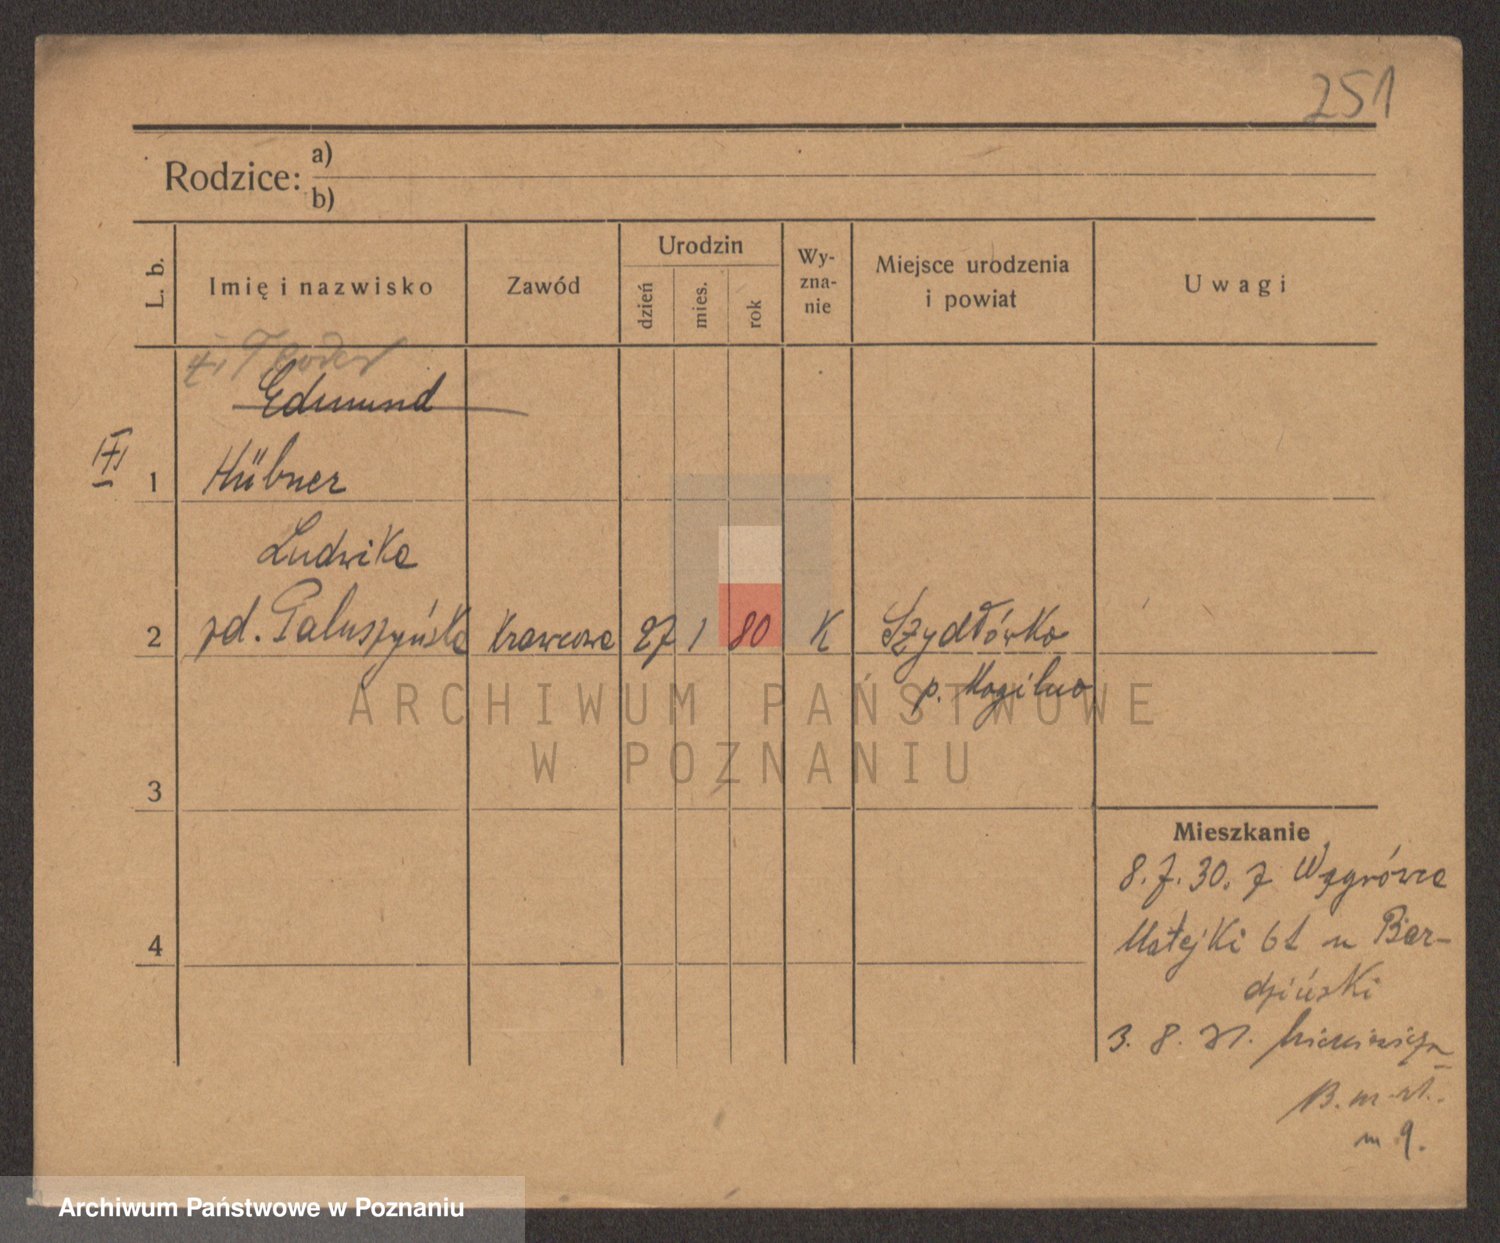 251
Rodzice: a)
b)
L. b. Imię i nazwisko Zawód Urodzin dzień mies. rok Wy-zna-nie Miejsce urodzenia i powiat Uwagi
Edmund
1 Hübner
Ludwika
2 zd. Paluszyńska krawcowa 27 1 80 K Szydłówko
p. Mogilno
3
ARCHIWUM PAŃSTWOWE
W POZNANIU
4
Mieszkanie
8. 7. 30. z Wągrówca
Matejki 61 u Bar-
dziński
3. 8. 31.
m 9.
Archiwum Państwowe w Poznaniu